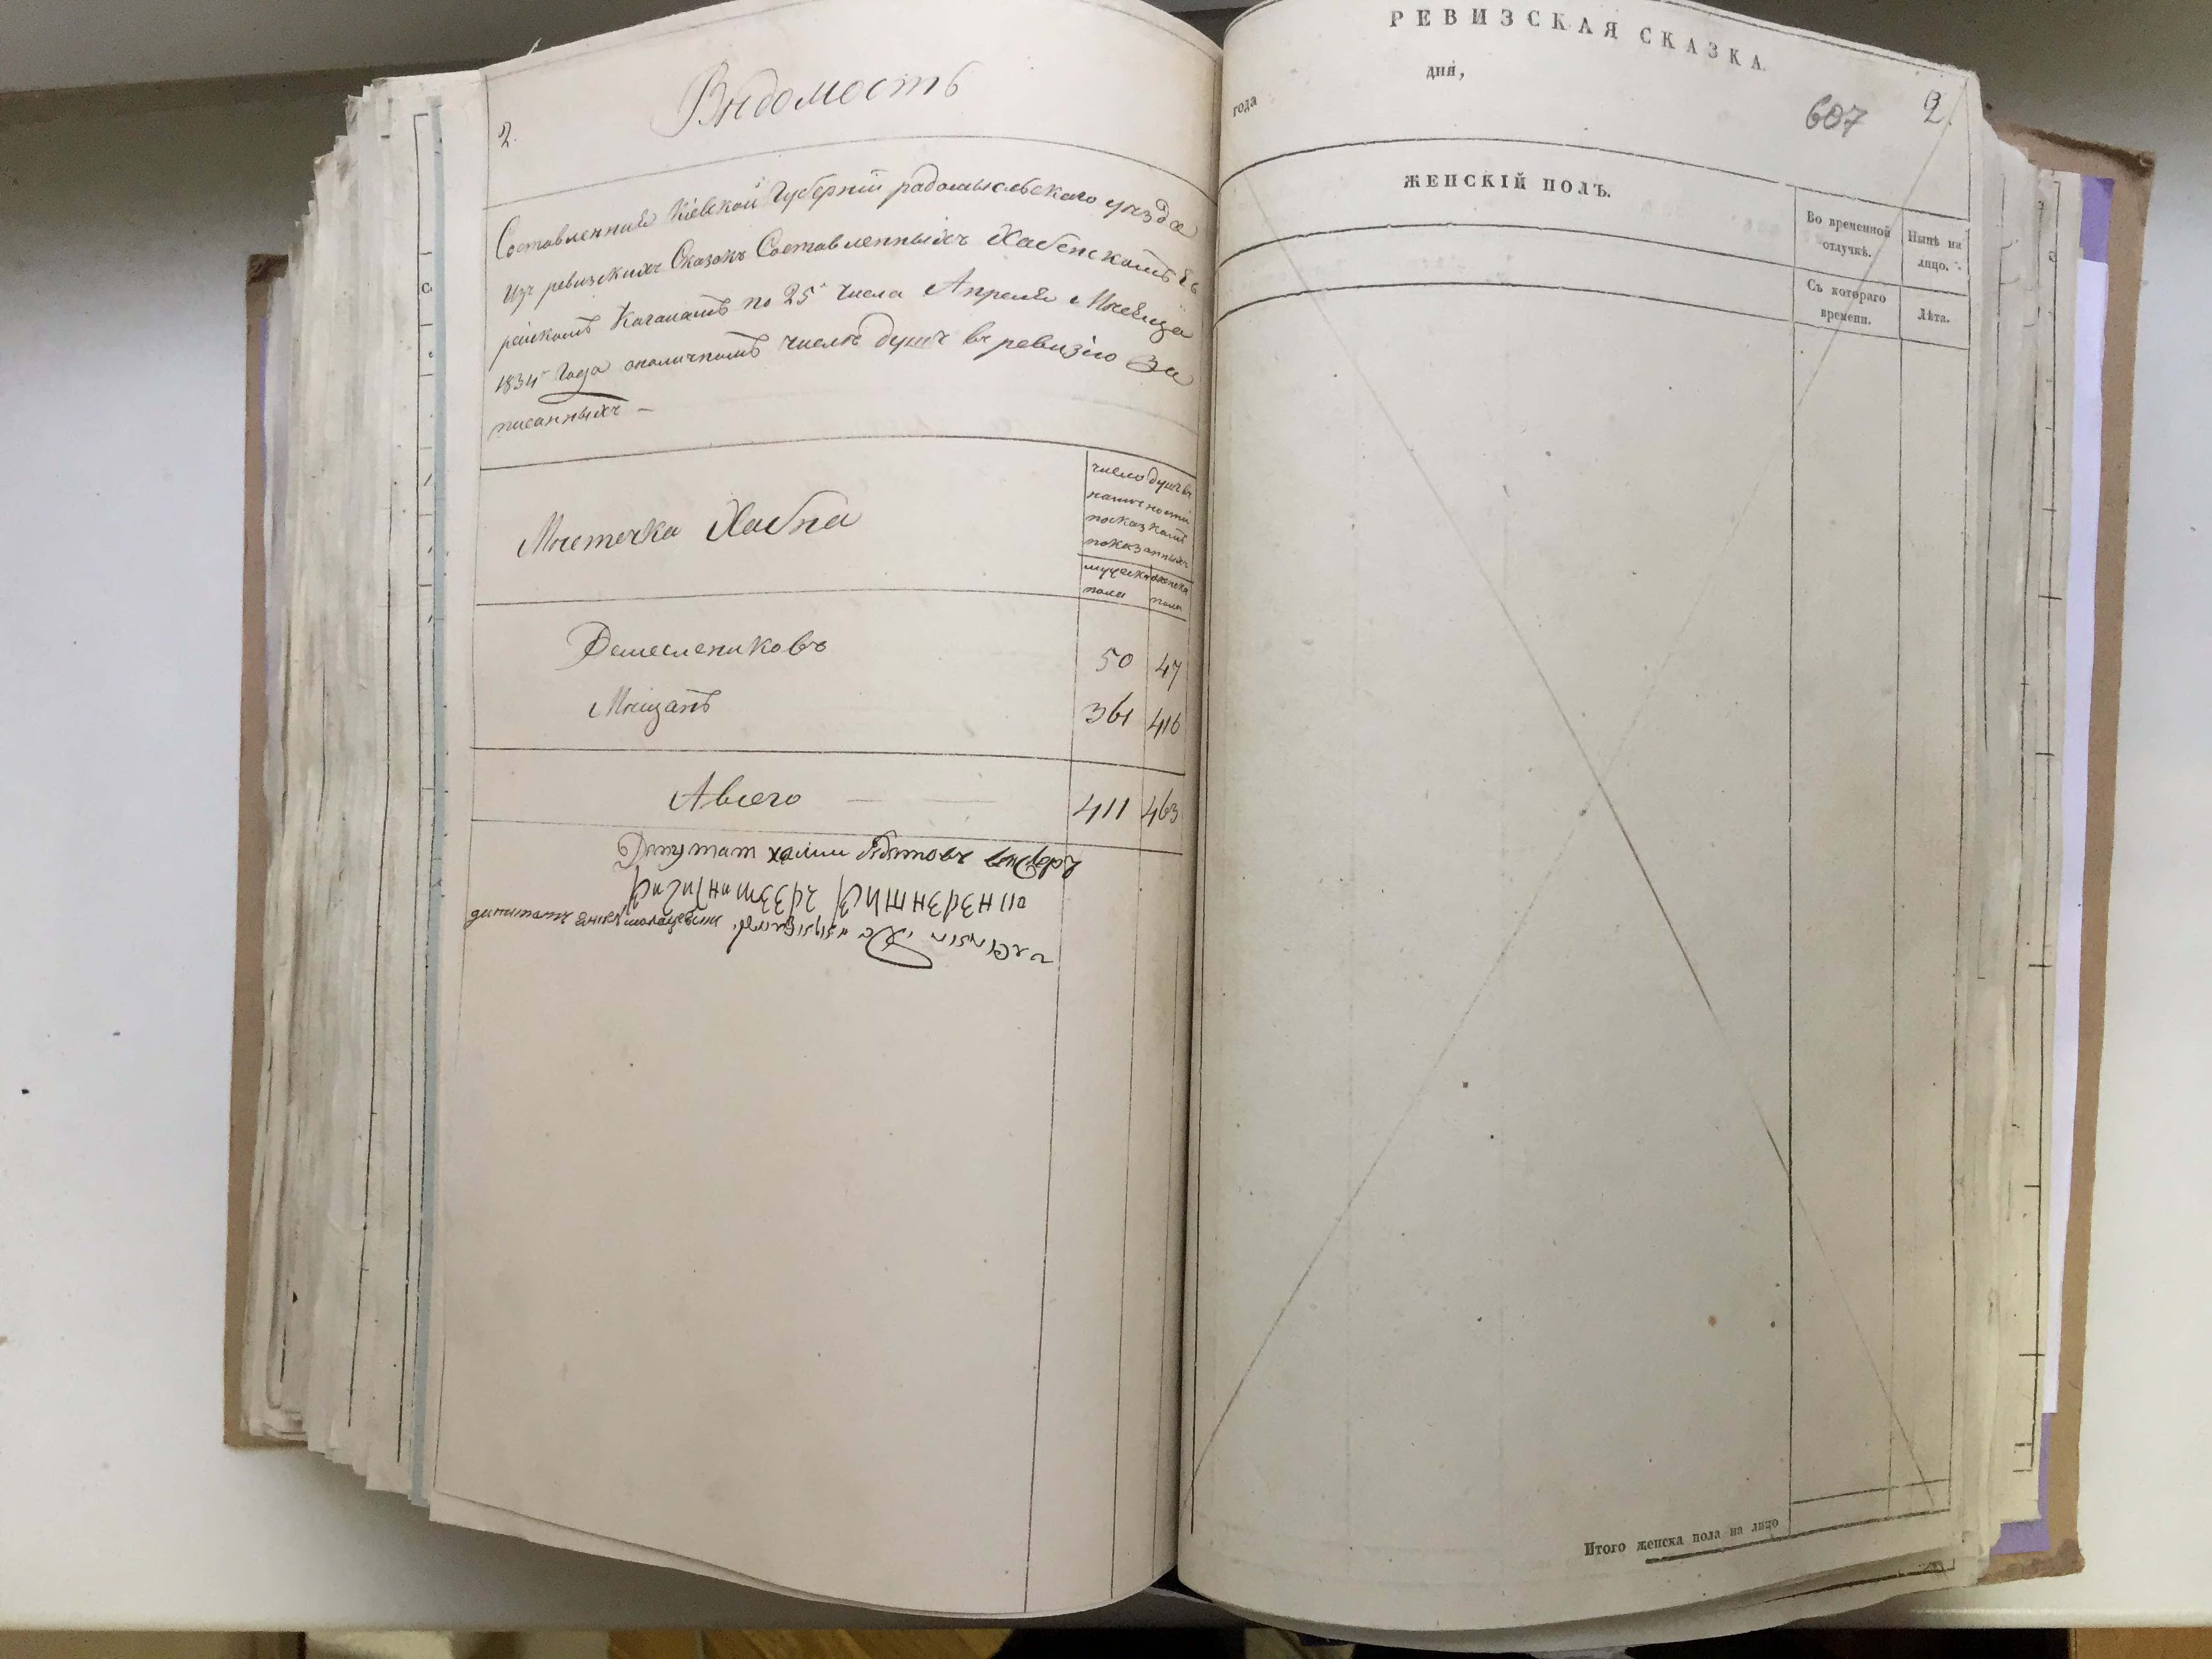 2.
Вѣдомость
Составленная Кіевской Губерніи радомысльского уѣзда
Изъ ревизскихъ Сказокъ Составленныхъ Хабенскомъ Ев
рейскомъ Кагаломъ по 25 числа Апреля Мѣсяца
1834 Года оналичномъ числѣ душъ въ ревизію За
писанныхъ —
Мѣстечка Хабна
число душъ въ
наличности
посказкамъ
показанныхъ
мужеска
пола
женска
пола
Ремеслениковъ 50 47
Мѣщанъ 361 416
Авсего 411 463
Депутат хаими
депутатъ
РЕВИЗСКАЯ СКАЗКА
года дня,
607 2.
ЖЕНСКІЙ ПОЛЪ.
Во временной
отлучкѣ.
Нынѣ на
лицо.
Съ котораго
времени.
Лѣта.
Итого женска пола на лицо